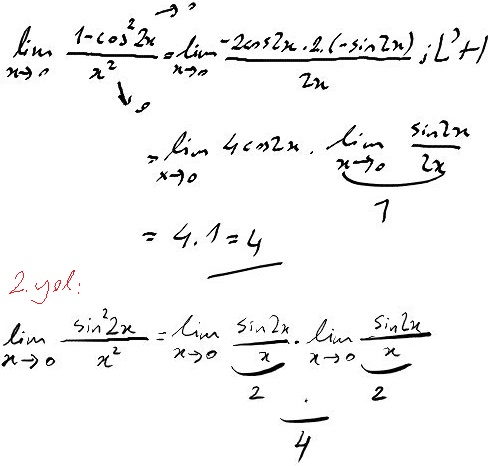 lim x→0 (1-cos²2x)/x² →0 →0 = lim x→0 (-2cos2x.2.(-sin2x))/2x ; L'H
= lim x→0 4cos2x . lim x→0 sin2x/2x
1
= 4.1=4
2.yol:
lim x→0 sin²2x/x² = lim x→0 sin2x/x . lim x→0 sin2x/x
2 . 2
4